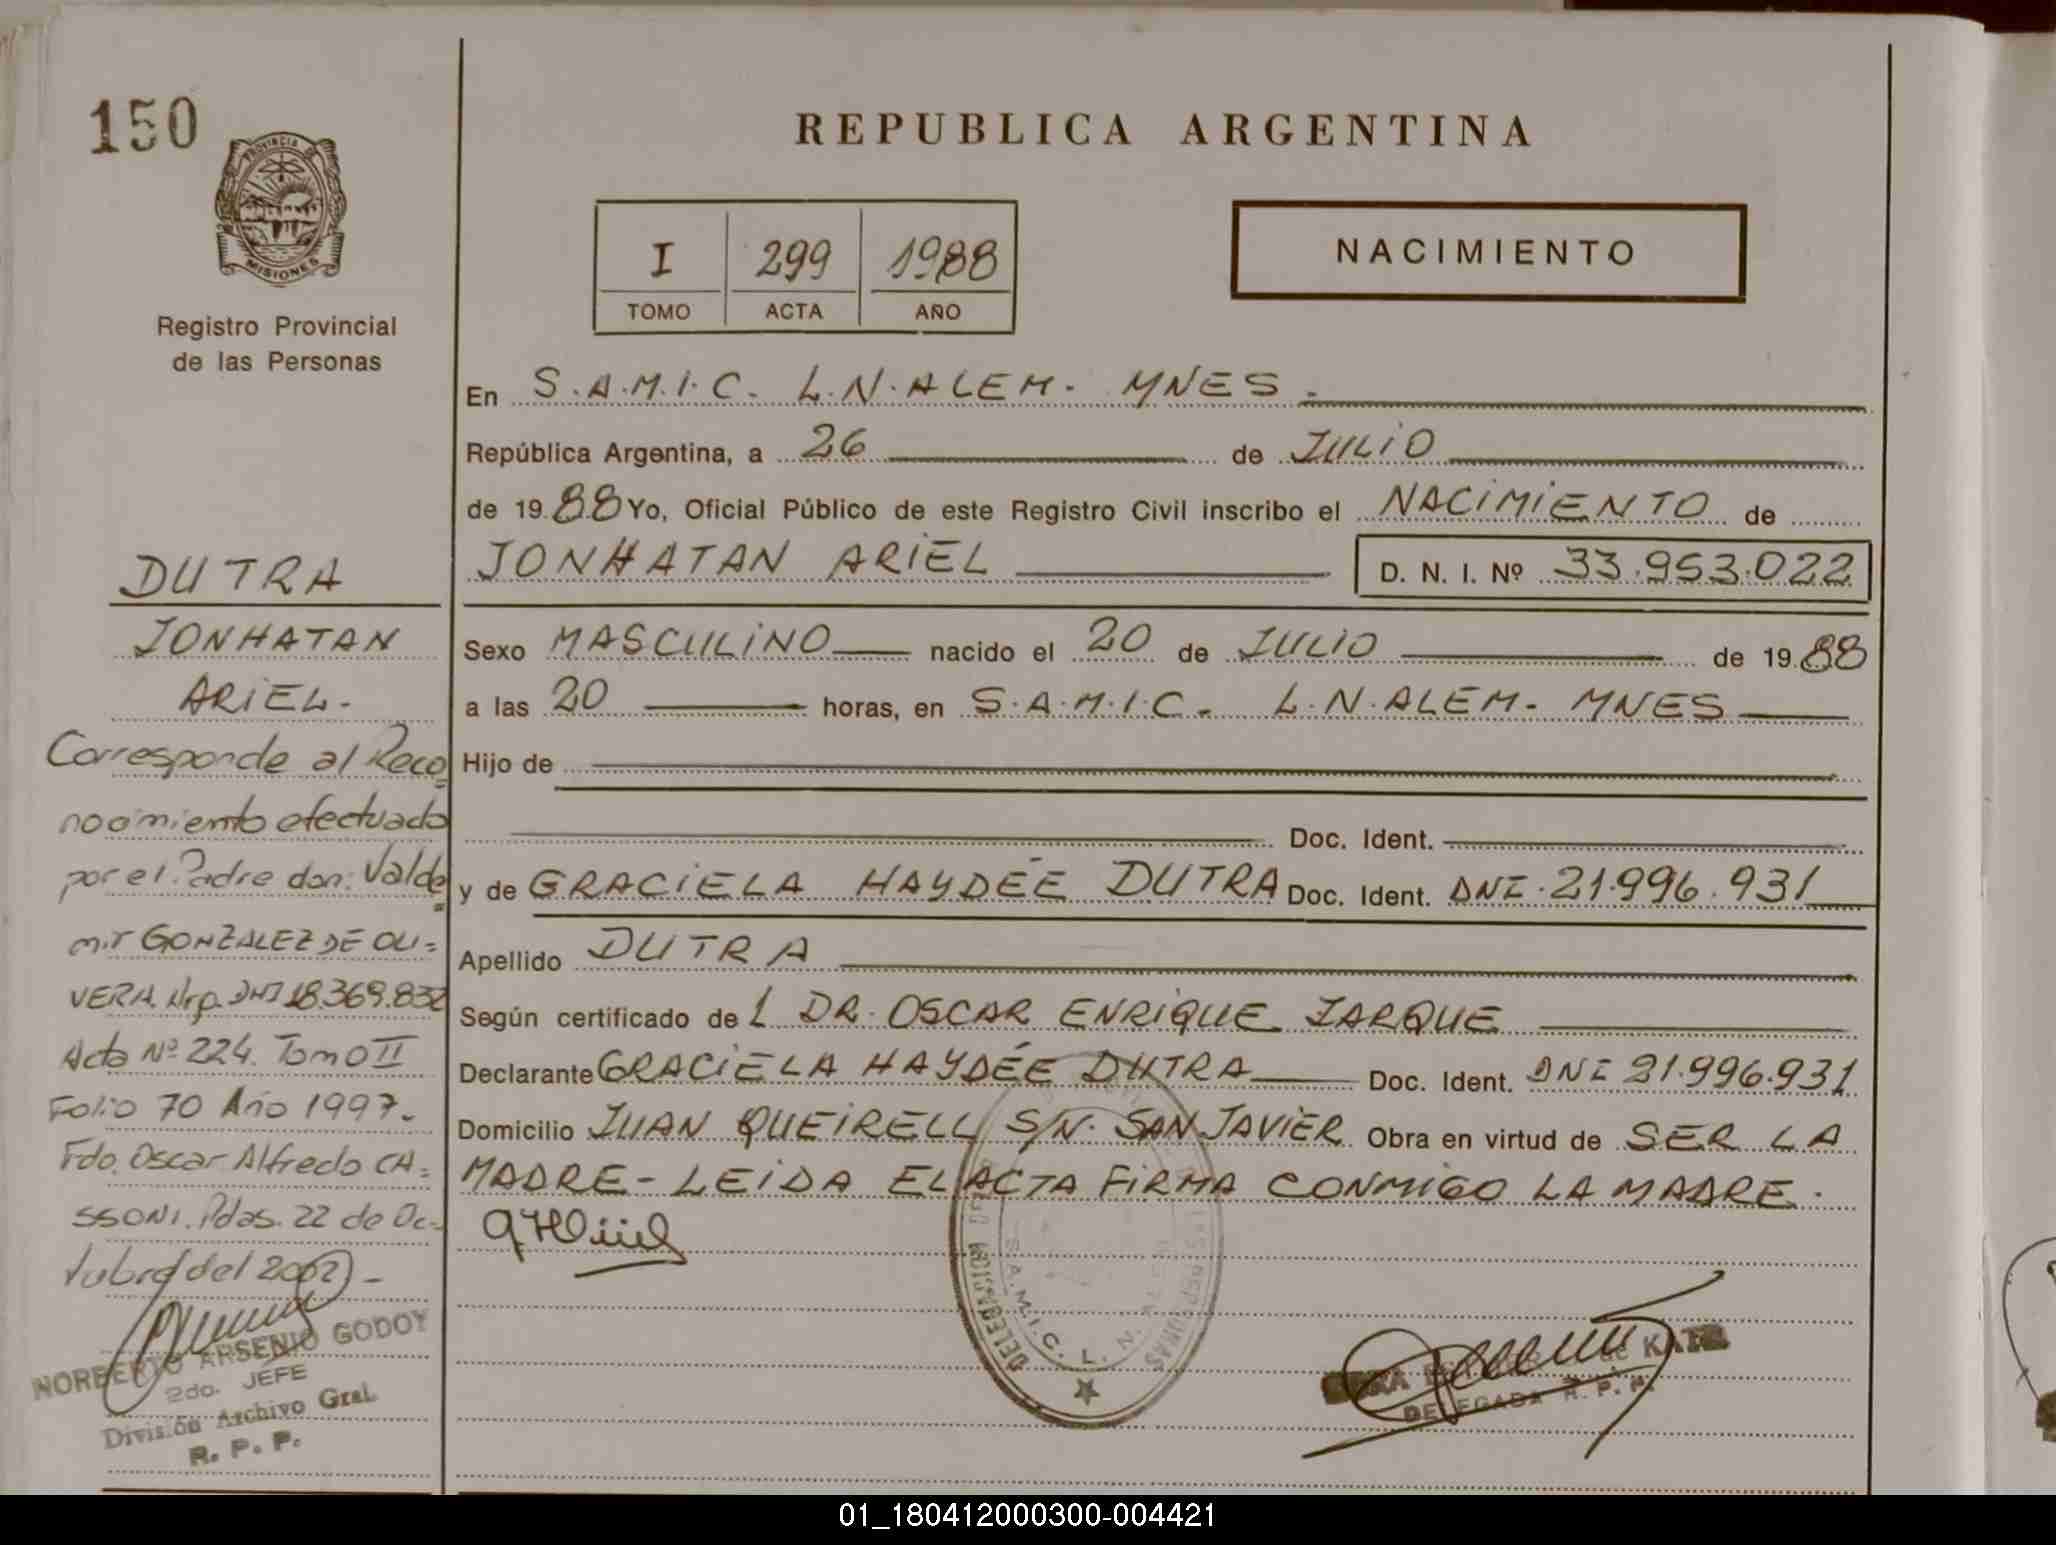 150
PROVINCIA DE
MISIONES
Registro Provincial
de las Personas
DUTRA
JONHATAN
ARIEL.
Corresponde al Reco=
nocimiento efectuado
por el Padre don: Valde=
mir GONZALEZ DE OLI=
VERA. Arg. DNI 18.369.832
Acta Nº 224. Tomo II
Folio 70 Año 1997.
Fdo. Oscar Alfredo CA=
SSONI. Pdas. 22 de Oc=
tubre del 2002) -
NORBERTO ARSENIO GODOY
2do. JEFE
División Archivo Gral.
R. P. P.
REPUBLICA ARGENTINA
I 299 1988
TOMO ACTA AÑO
NACIMIENTO
En S.A.M.I.C. L.N.ALEM. MNES.
República Argentina, a 26 de JULIO
de 1988 Yo, Oficial Público de este Registro Civil inscribo el NACIMIENTO de
JONHATAN ARIEL D. N. I. Nº 33.953.022
Sexo MASCULINO nacido el 20 de JULIO de 1988
a las 20 horas, en S.A.M.I.C. L.N.ALEM. MNES
Hijo de
Doc. Ident.
y de GRACIELA HAYDÉE DUTRA Doc. Ident. DNI. 21.996.931
Apellido DUTRA
Según certificado de L DR. OSCAR ENRIQUE JARQUE
Declarante GRACIELA HAYDÉE DUTRA Doc. Ident. DNI 21.996.931
Domicilio JUAN QUEIRELL S/N. SAN JAVIER Obra en virtud de SER LA
MADRE - LEIDA EL ACTA FIRMA CONMIGO LA MADRE.
S.A.M.I.C. L. N.
KATZ
DELEGADA R. P. P.
01_180412000300-004421